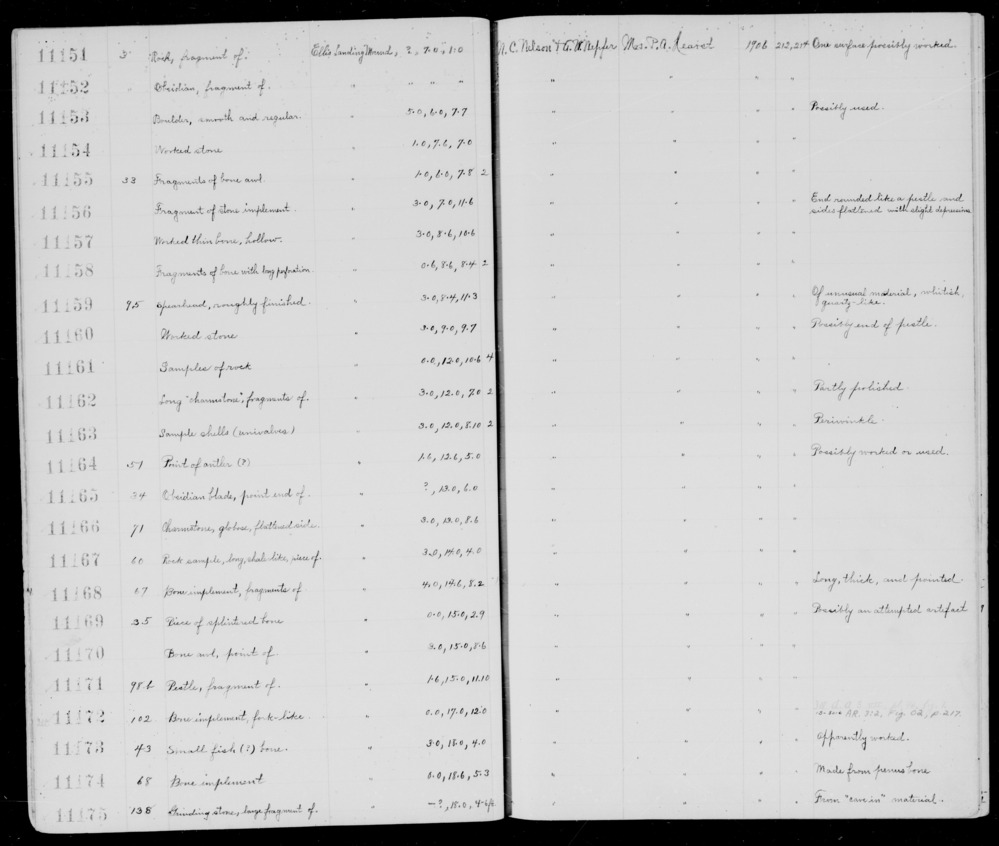 11151 5 Rock, fragment of. Ellis Landing Mound, ?, 7.0, 1.0 N. C. Nelson + Mrs. P. A. Hearst 1906 212, 214 One surface possibly worked.
11152 " Obsidian, fragment of. " " " " " " " "
11153 Boulder, smooth and regular. " 5.0, 6.0, 7.7 " " " " Possibly used.
11154 Worked stone " 1.0, 7.6, 7.0 " " " "
11155 33 Fragments of bone awl. " 1.0, 6.0, 7.8 2 " " " "
11156 Fragment of stone implement. " 3.0, 7.0, 11.6 " " " " End rounded like a pestle and
sides flattened with slight depressions
11157 Worked thin bone, hollow. " 3.0, 8.6, 10.6 " " " "
11158 Fragments of bone with long perforation. " 0.6, 8.6, 8.4 2 " " " "
11159 95 Spearhead, roughly finished. " 3.0, 8.4, 11.3 " " " " Of unusual material, whitish,
quartz-like.
11160 Worked stone " 3.0, 9.0, 9.7 " " " " Possibly end of pestle.
11161 Samples of rock " 0.0, 12.0, 10.6 4 " " " "
11162 Long "charmstone", fragments of. " 3.0, 12.0, 7.0 2 " " " " Partly polished.
11163 Sample shells (univalves) " 3.0, 12.0, 8.10 2 " " " " Periwinkle.
11164 51 Point of antler (?) " 1.6, 12.6, 5.0 " " " " Possibly worked or used.
11165 34 Obsidian blade, point end of. " ?, 13.0, 6.0 " " " "
11166 71 Charmstone, globose, flattened side. " 3.0, 13.0, 8.6 " " " "
11167 60 Rock sample, long, shale-like, piece of. " 3.0, 14.0, 4.0 " " " "
11168 17 Bone implement, fragments of. " 4.0, 14.6, 8.2 " " " " Long, thick, and pointed.
11169 35 Piece of splintered bone " 0.0, 15.0, 2.9 " " " " Possibly an attempted artefact
11170 Bone awl, point of. " 3.0, 15.0, 8.6 " " " "
11171 98.b Pestle, fragment of. " 1.6, 15.0, 11.10 " " " "
11172 102 Bone implement, fork-like. " 0.0, 17.0, 12.0 " " " " AR. 212, Fig. p. 217.
11173 43 Small fish (?) bone. " 3.0, 18.0, 4.0 " " " " Apparently worked.
11174 68 Bone implement " 0.0, 18.6, 5.3 " " " " Made from penis bone
11175 138 Grinding stone, large fragment of. " —?, 18.0, " " " " From "cave in" material.